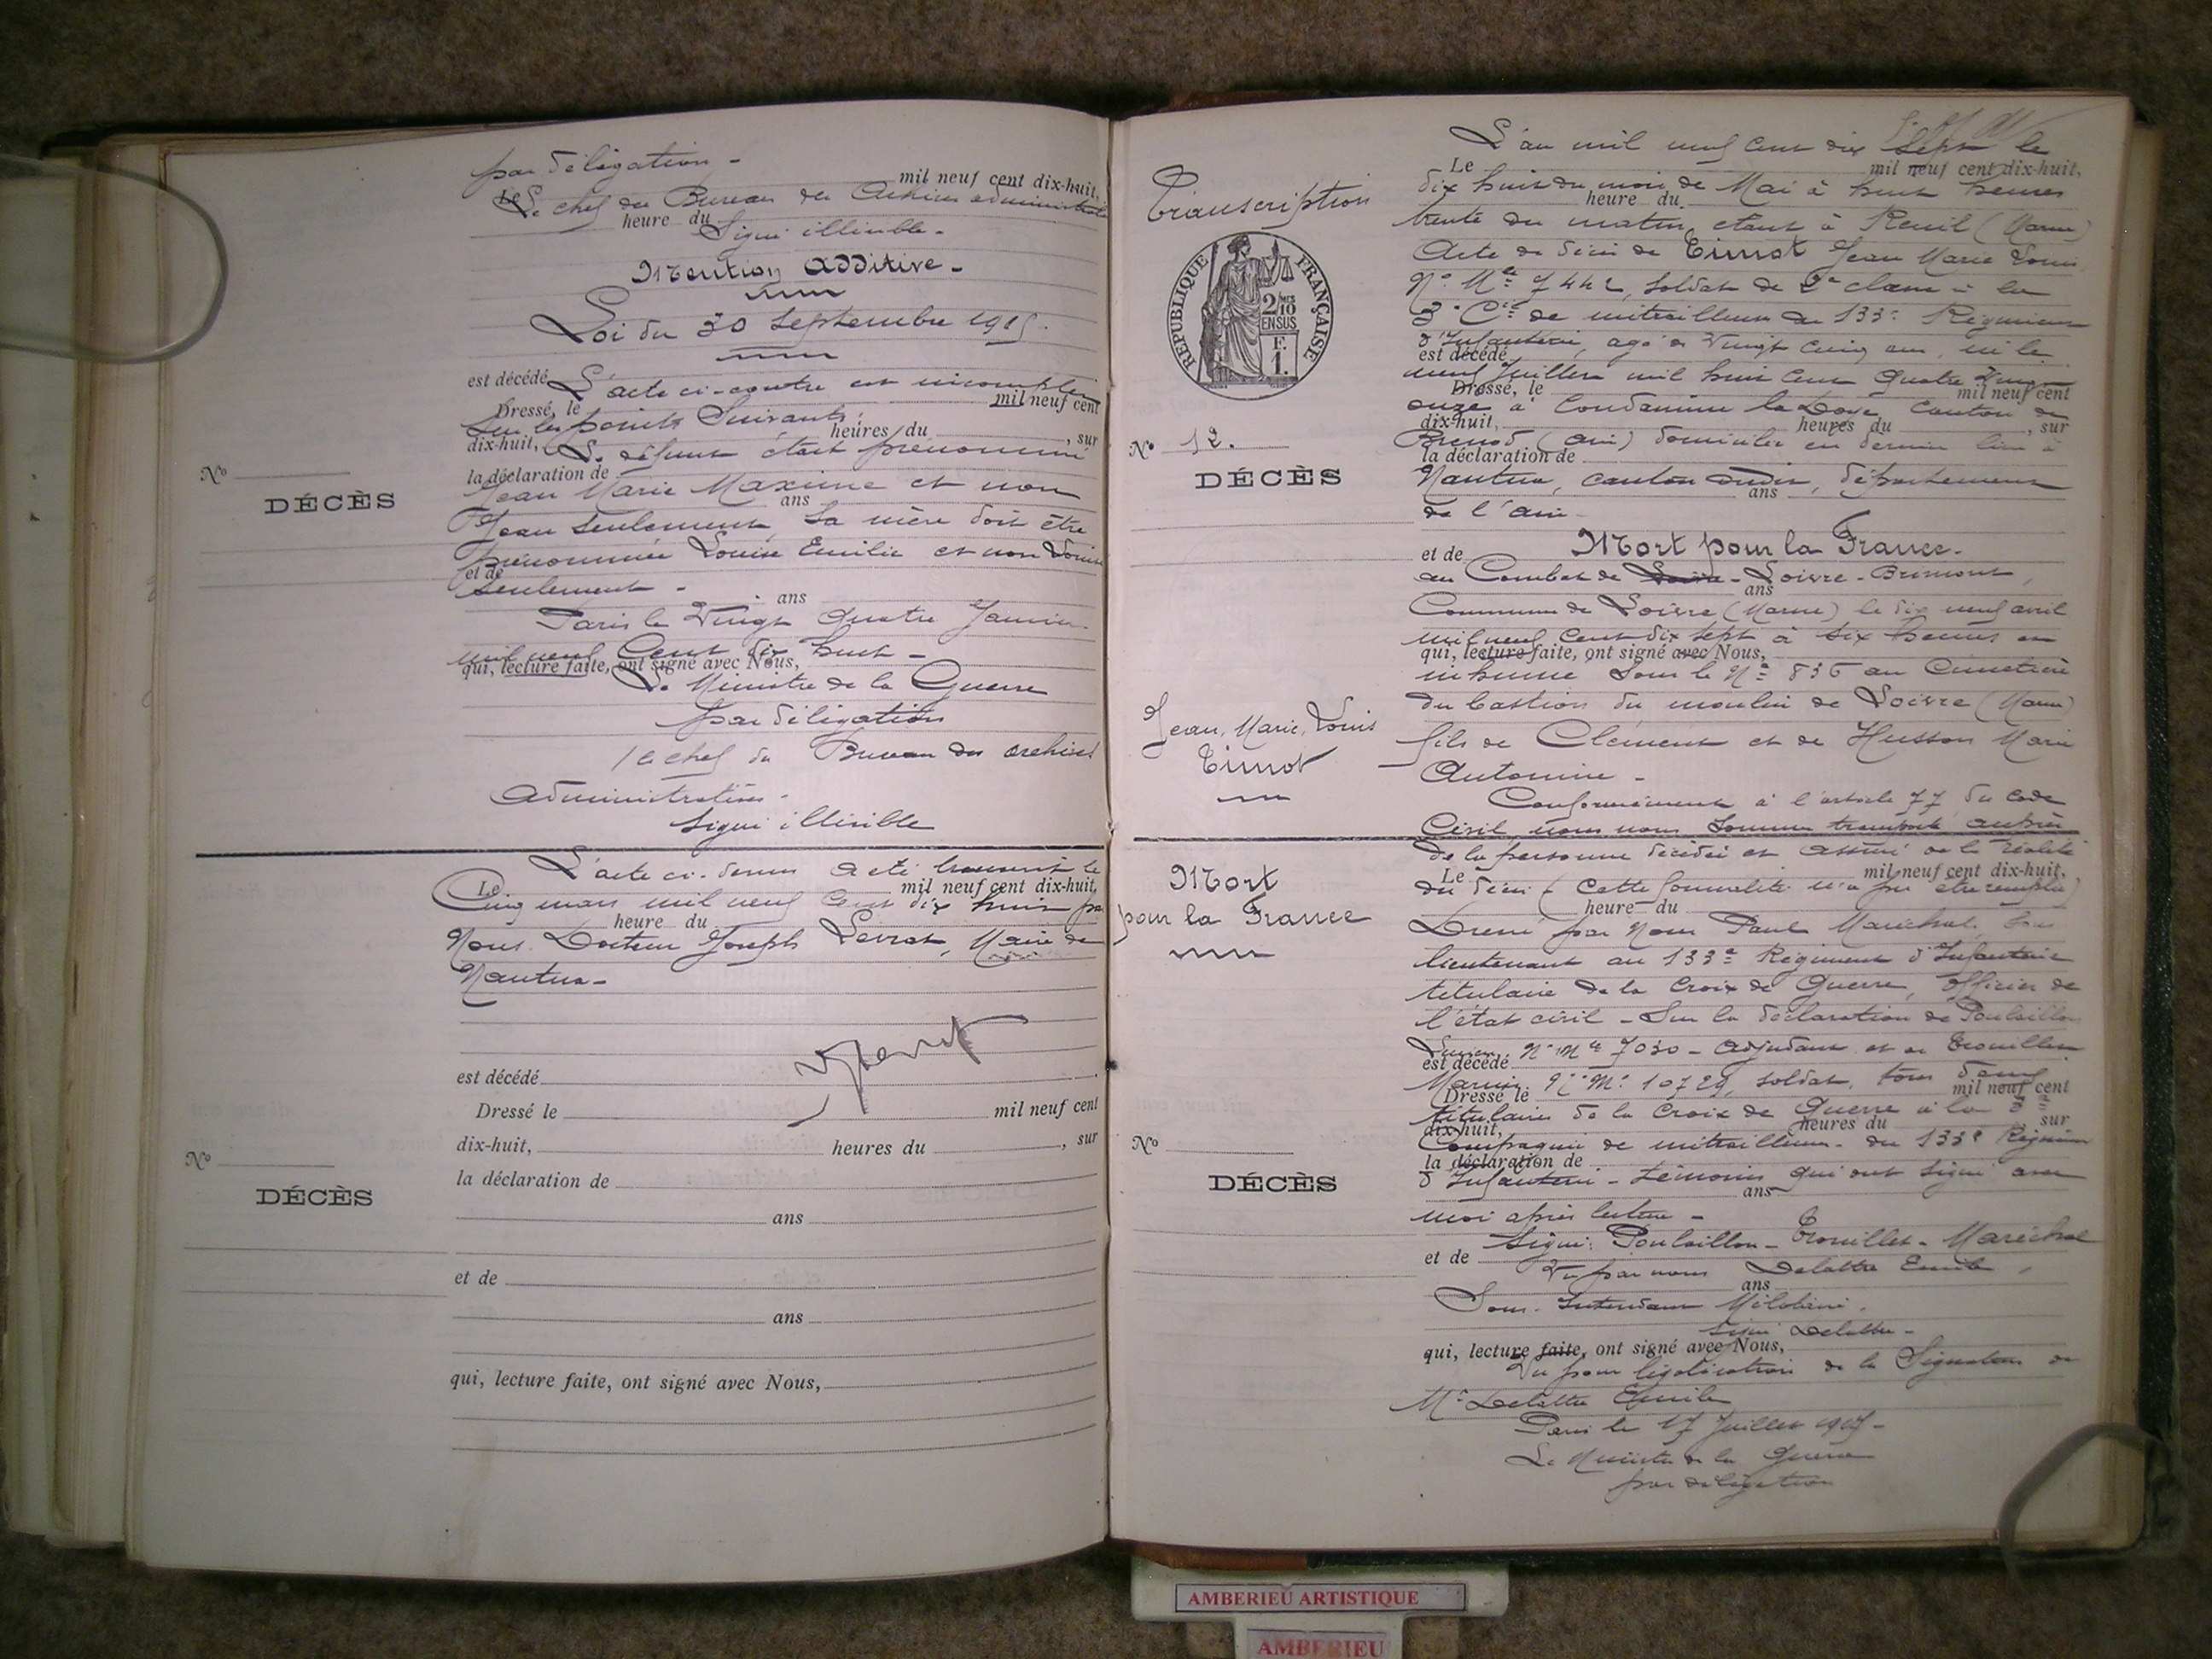 par délégation -
mil neuf cent dix-huit,
Le chef du Bureau des Archives administratives
heure du
Signé illisible -
Mention additive -
Loi du 30 Septembre 1915.
est décédé
L'acte ci-contre est incomplet
Dressé, le mil neuf cent
sur les points suivants :
dix-huit, heures du , sur
Le défunt était prénommé
la déclaration de
Jean Marie Maxime et non
ans
Jean seulement, sa mère doit être
prénommée Louise Emilie et non Louise
et de
seulement -
ans
Paris le Vingt Quatre Janvier
mil neuf Cent dix huit -
qui, lecture faite, ont signé avec Nous,
Le Ministre de la Guerre
par délégation
le chef du Bureau des archives
Administratives -
signé illisible
Nº
DÉCÈS
L'acte ci-dessus a été transcrit le
Le mil neuf cent dix-huit,
Cinq mars mil neuf Cent dix huit par
heure du
Nous Docteur Joseph Levrat, Maire de
Nantua -
est décédé
Dressé le mil neuf cent
dix-huit, heures du , sur
la déclaration de
ans
et de
ans
qui, lecture faite, ont signé avec Nous,
Nº
DÉCÈS
Transcription
RÉPUBLIQUE FRANÇAISE
2/10
EN SUS
F.
1.
Nº 12.
DÉCÈS
Jean, Marie, Louis
Tinot
Mort
pour la France
L'an mil neuf cent dix sept le
Le mil neuf cent dix-huit,
dix huit du mois de Mai à huit heures
heure du
trente du matin, étant à Reuil (Marne)
Acte de décès de Jean Marie Louis
Nº Mle 7442, soldat de 2e classe à la
3e Cie de mitrailleuses du 133e Régiment
d'Infanterie, agé de Vingt cinq ans, né le
est décédé
neuf Juillet mil huit cent quatre vingt
Dressé, le mil neuf cent
onze à Condamine la Doye, Canton de
dix-huit, heures du , sur
Brénod (Ain) domicilié en dernier lieu à
la déclaration de
Nantua, canton dudit, département
ans
de l'Ain -
Mort pour la France -
et de
au Combat de Loivre - Brimont,
ans
Commune de Loivre (Marne) le dix neuf avril
mil neuf Cent dix sept à six heures
qui, lecture faite, ont signé avec Nous,
inhumé sous le Nº 836 au Cimetière
du bastion du moulin de Loivre (Marne)
fils de Clément et de Husson Marie
Antonine -
Conformément à l'article 77 du code
Civil nous nous sommes transporté auprès
de la personne décédée et assuré de la réalité
Le mil neuf cent dix-huit,
du décès (Cette formalité n'a pu être remplie)
heure du
Dressé par Nous Paul Maréchal, sous
lieutenant au 133e Régiment d'Infanterie
titulaire de la Croix de Guerre, Officier de
l'état civil - Sur la déclaration de Poulaillon
Nº Mle 7030 - Adjudant et de Trouillet
est décédé
Nº Mle 10729, soldat, tous deux
Dressé le mil neuf cent
titulaires de la Croix de Guerre à la 3e
dix-huit, heures du sur
Compagnie de mitrailleuses du 133e Régiment
la déclaration de
d'Infanterie - témoins qui ont signé avec
ans
moi après lecture -
Signé : Poulaillon - Trouillet - Maréchal
et de
Vu par nous Delattre Emile,
ans
Sous-Intendant Militaire.
Signé Delattre -
qui, lecture faite, ont signé avec Nous,
Vu pour légalisation de la Signature de
Mr Delattre Emile
Paris le 17 Juillet 1917 -
Le Ministre de la Guerre
par délégation
Nº
DÉCÈS
AMBERIEU ARTISTIQUE
AMBERIEU